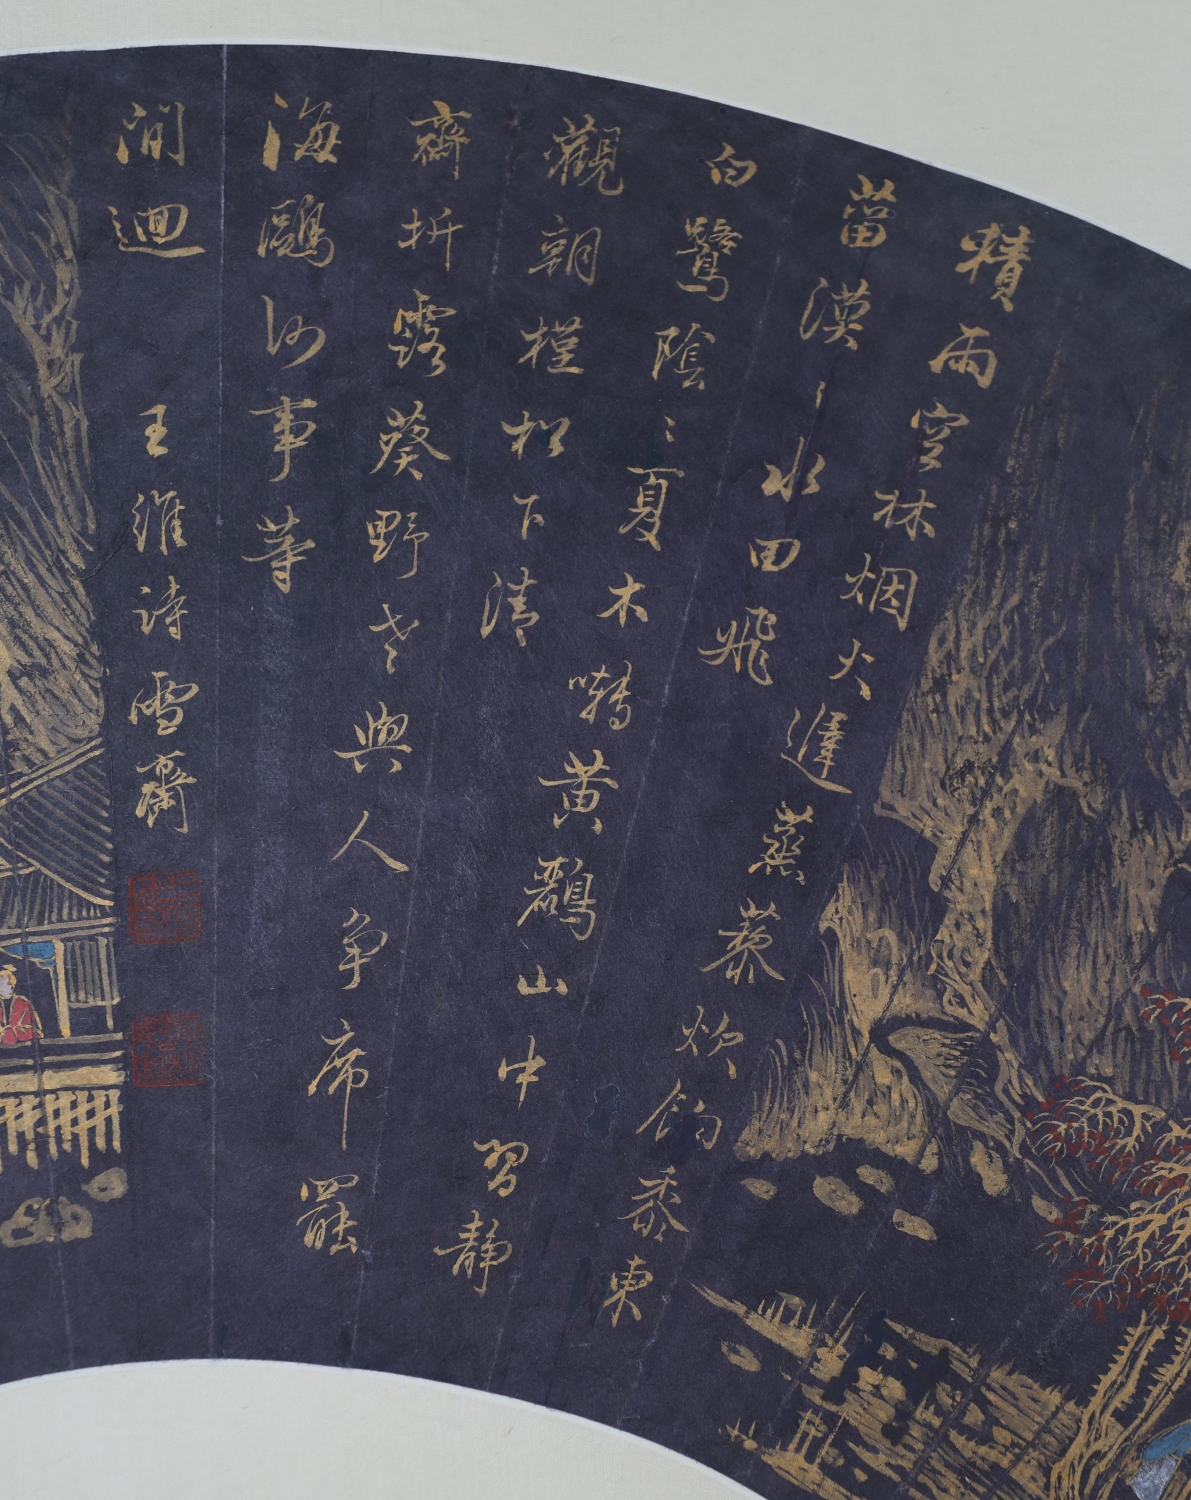 積雨空林烟火遲蒸藜炊餉黍東
菑漠〻水田飛
白鷺陰〻夏木囀黄鸝山中習静
觀朝槿松下清
齋折露葵野老與人争席罷
海鷗何事等
閒迴 王維詩雪齋